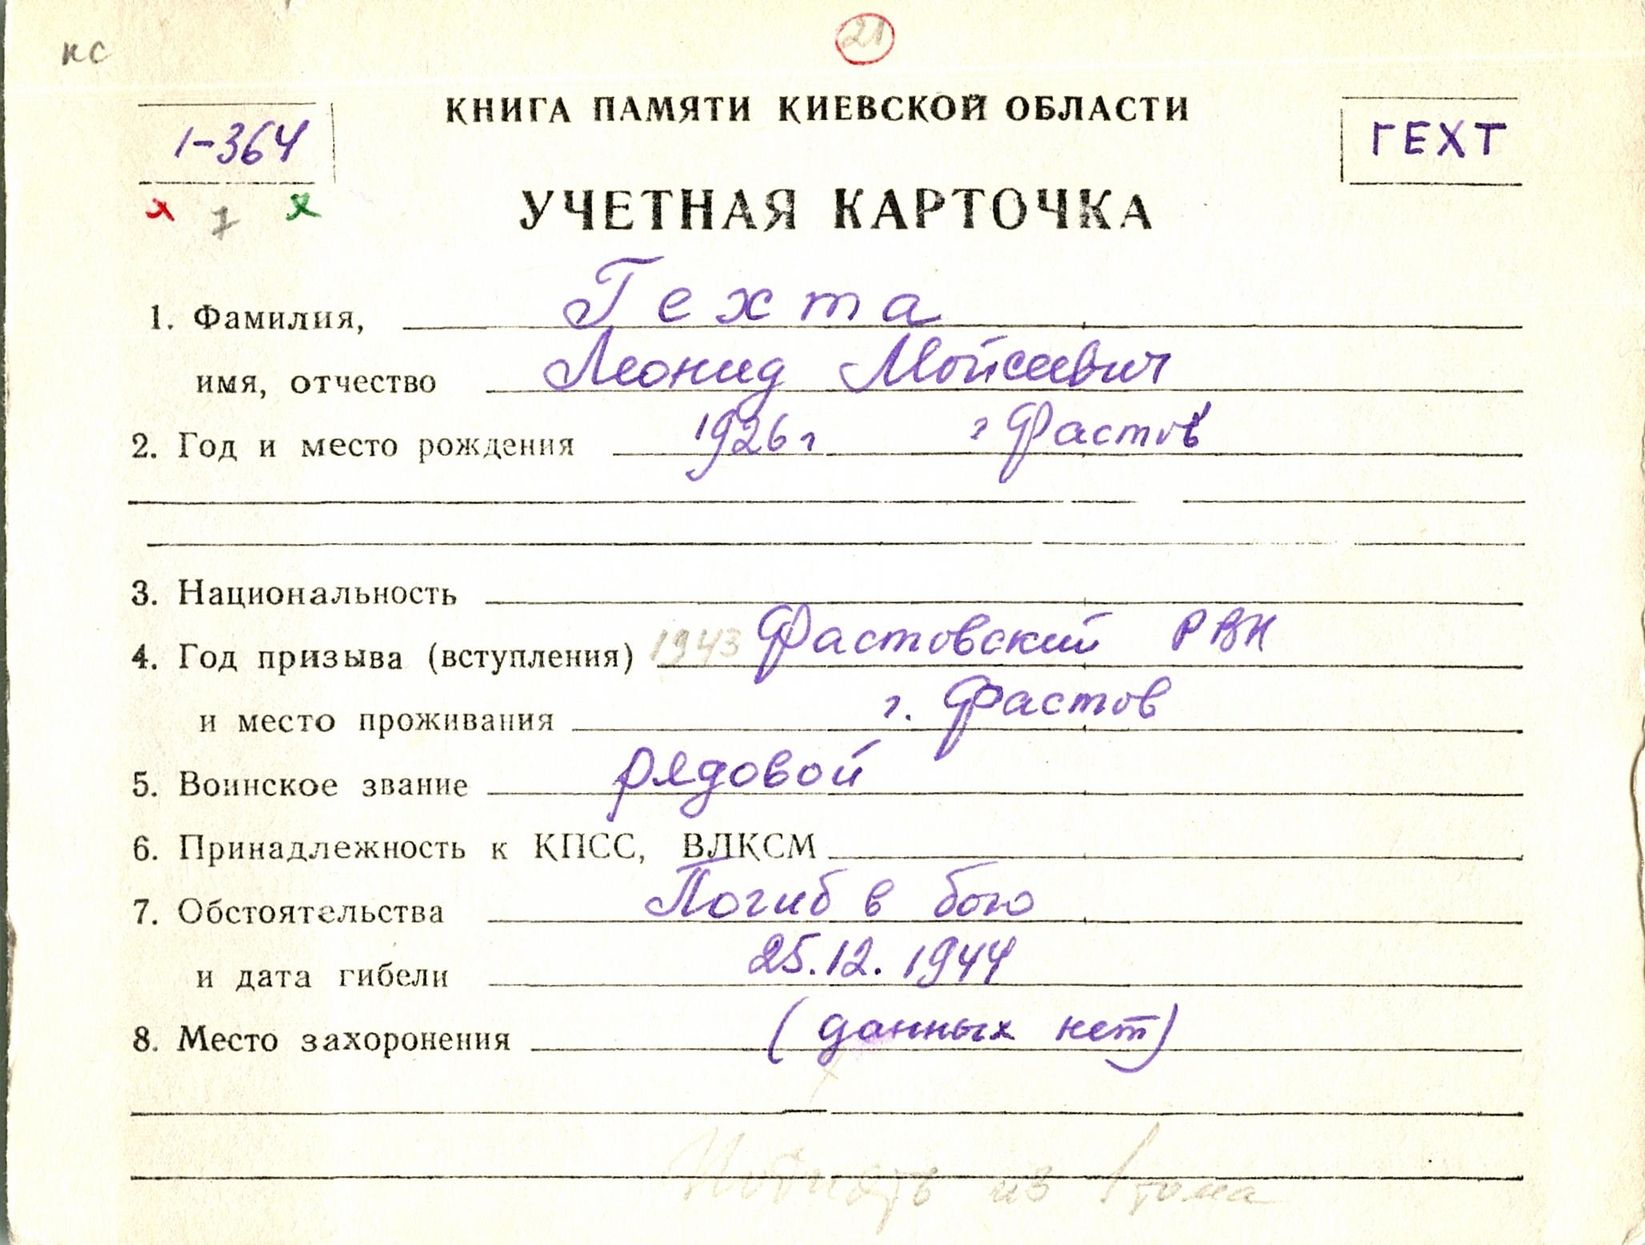 кс
21
КНИГА ПАМЯТИ КИЕВСКОЙ ОБЛАСТИ
1-364
ГЕХТ
х 7 х
УЧЕТНАЯ КАРТОЧКА
1. Фамилия, Гехта
имя, отчество Леонид Мойсеевич
2. Год и место рождения 1926 г г Фастов
3. Национальность
4. Год призыва (вступления) 1943 Фастовский РВК
и место проживания г. Фастов
5. Воинское звание рядовой
6. Принадлежность к КПСС, ВЛКСМ
7. Обстоятельства Погиб в бою
и дата гибели 25.12.1944
8. Место захоронения (данных нет)
из 1 тома